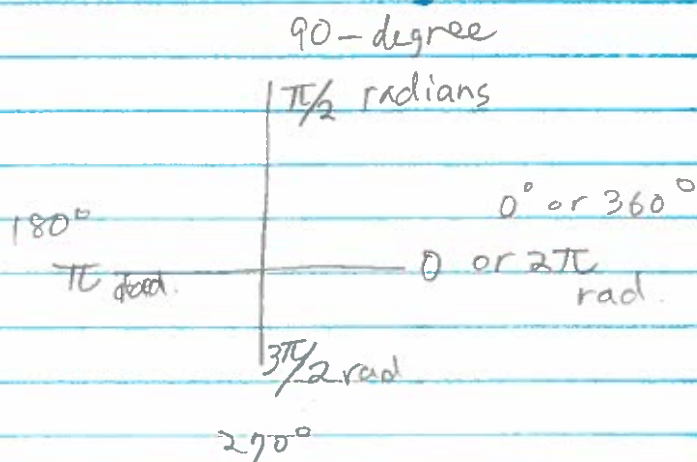 90-degree
π/2 radians
0° or 360°
180°
π rad.
0 or 2π
rad.
3π/2 rad
270°